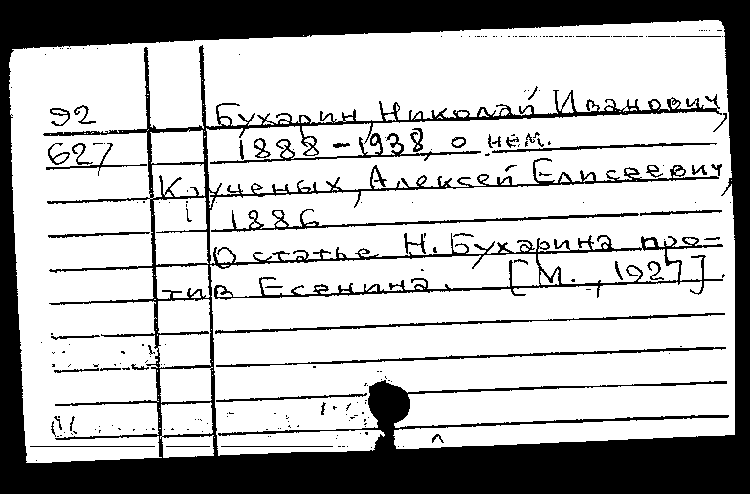 92 Бухарин, Николай Иванович,
627 1888-1938, о нем.
Крученых, Алексей Елисеевич,
1886
О статье Н. Бухарина про-
тив Есенина. [М., 1927].